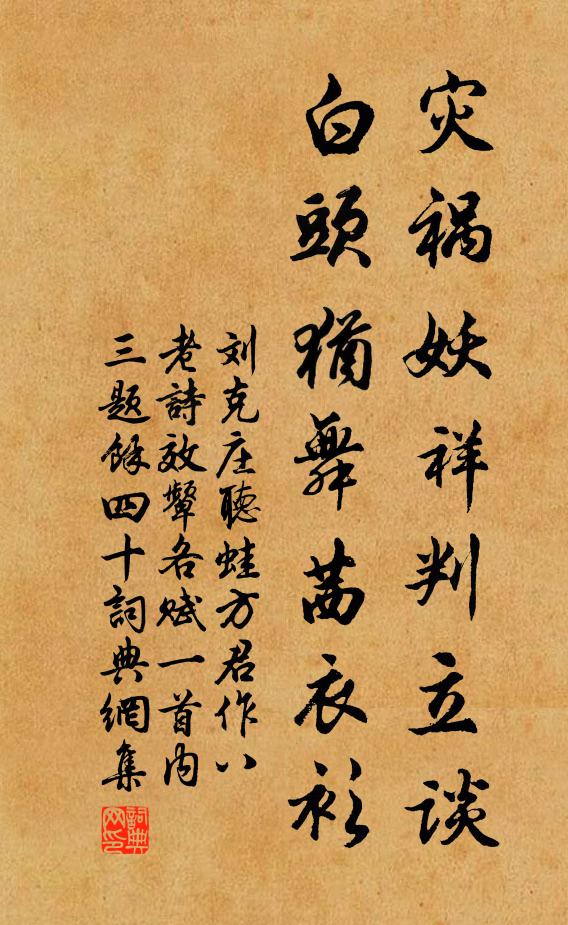 灾祸妖祥判立谈
白頭猶舞茜衣衫
刘克庄聽蛙方君作八
老詩效顰各赋一首内
三题餘四十詞典網集
詞典网印